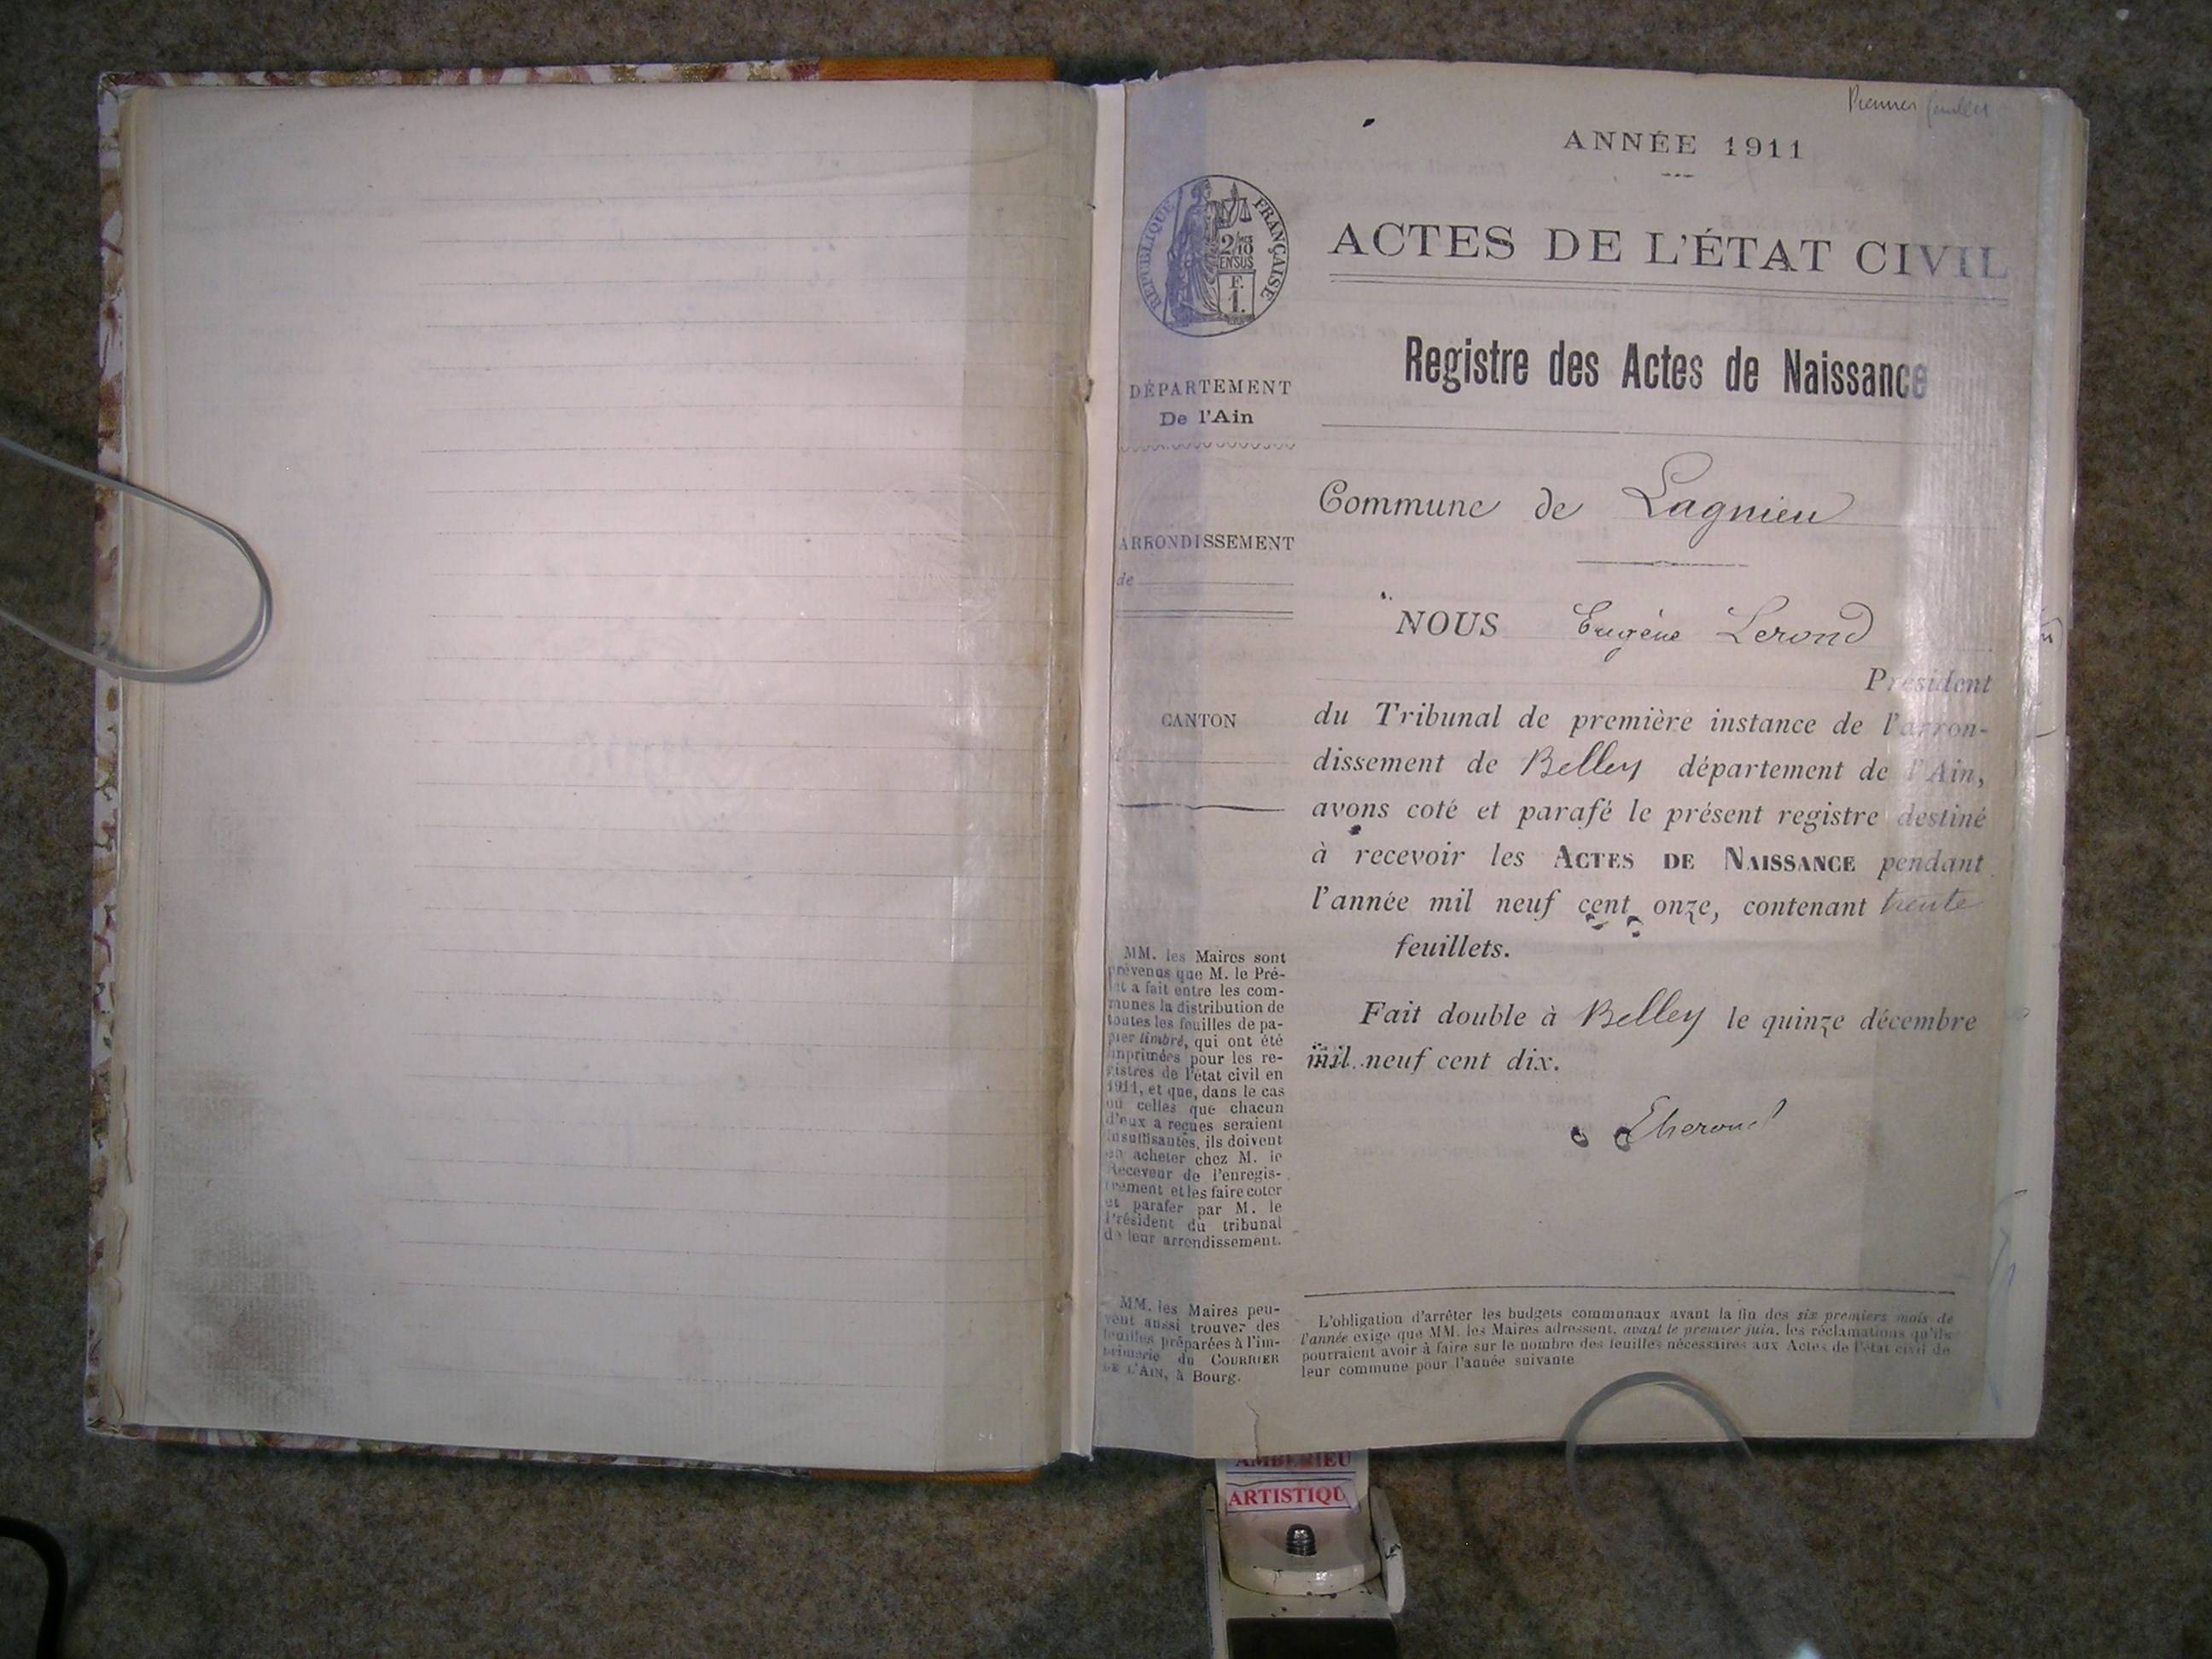 Premier feuillet
ANNÉE 1911
ACTES DE L'ÉTAT CIVIL
Registre des Actes de Naissance
RÉPUBLIQUE FRANÇAISE
2/10
EN SUS
F.
1.
DÉPARTEMENT
De l'Ain
ARRONDISSEMENT
de
CANTON
MM. les Maires sont
prévenus que M. le Pré-
fet a fait entre les com-
munes la distribution de
toutes les feuilles de pa-
pier timbré, qui ont été
imprimées pour les re-
gistres de l'état civil en
1911, et que, dans le cas
où celles que chacun
d'eux a reçues seraient
insuffisantes, ils doivent
en acheter chez M. le
Receveur de l'enregis-
trement et les faire coter
et parafer par M. le
Président du tribunal
de leur arrondissement.
MM. les Maires peu-
vent aussi trouver des
feuilles préparées à l'im-
primerie du COURRIER
DE L'AIN, à Bourg.
Commune de Lagnieu
NOUS Eugène Lerond
Président
du Tribunal de première instance de l'arron-
dissement de Belley département de l'Ain,
avons coté et parafé le présent registre destiné
à recevoir les ACTES DE NAISSANCE pendant
l'année mil neuf cent onze, contenant trente
feuillets.
Fait double à Belley le quinze décembre
mil neuf cent dix.
L'obligation d'arrêter les budgets communaux avant la fin des six premiers mois de
l'année exige que MM. les Maires adressent, avant le premier juin, les réclamations qu'ils
pourraient avoir à faire sur le nombre des feuilles nécessaires aux Actes de l'état civil de
leur commune pour l'année suivante.
AMBERIEU
ARTISTIQU